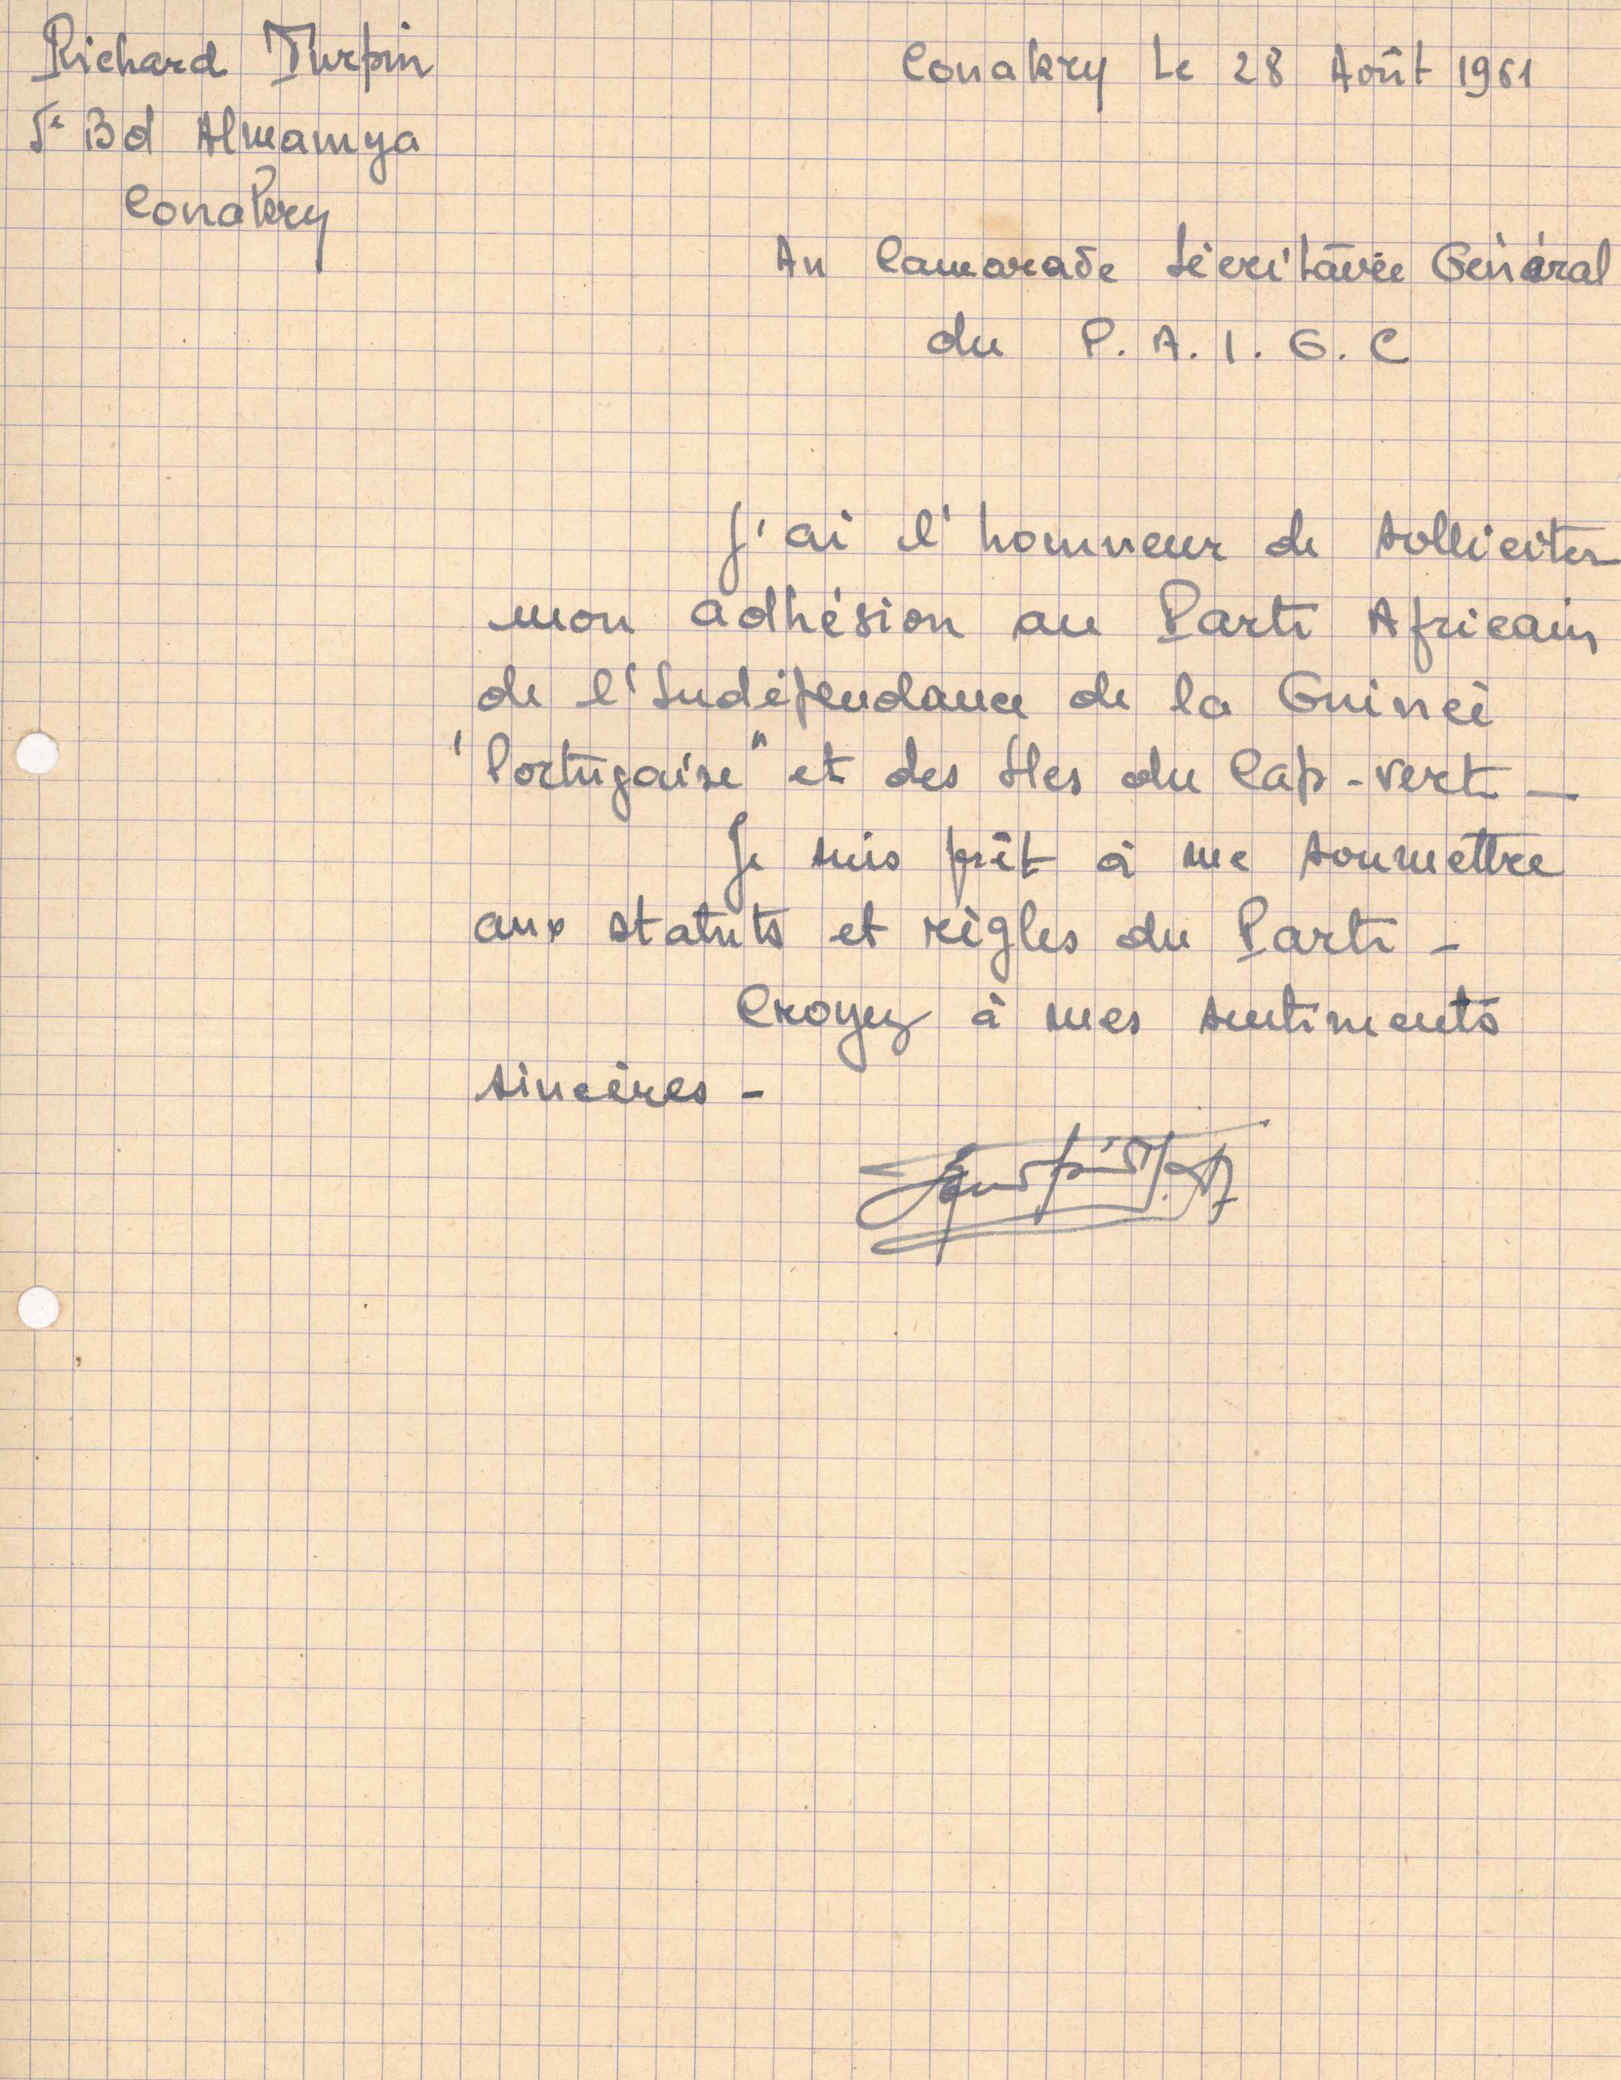 Richard Turpin
5e Bd Almamya
Conakry
Conakry Le 28 Août 1961
Au Camarade Sécrétaire Général
du P. A. I. G. C
J'ai l'honneur de solliciter
mon adhésion au Parti Africain
de l'Indépendance de la Guinée
"Portugaise" et des Iles du Cap-vert _
Je suis prêt à me soumettre
aux statuts et règles du Parti -
Croyez à mes sentiments
sincères -